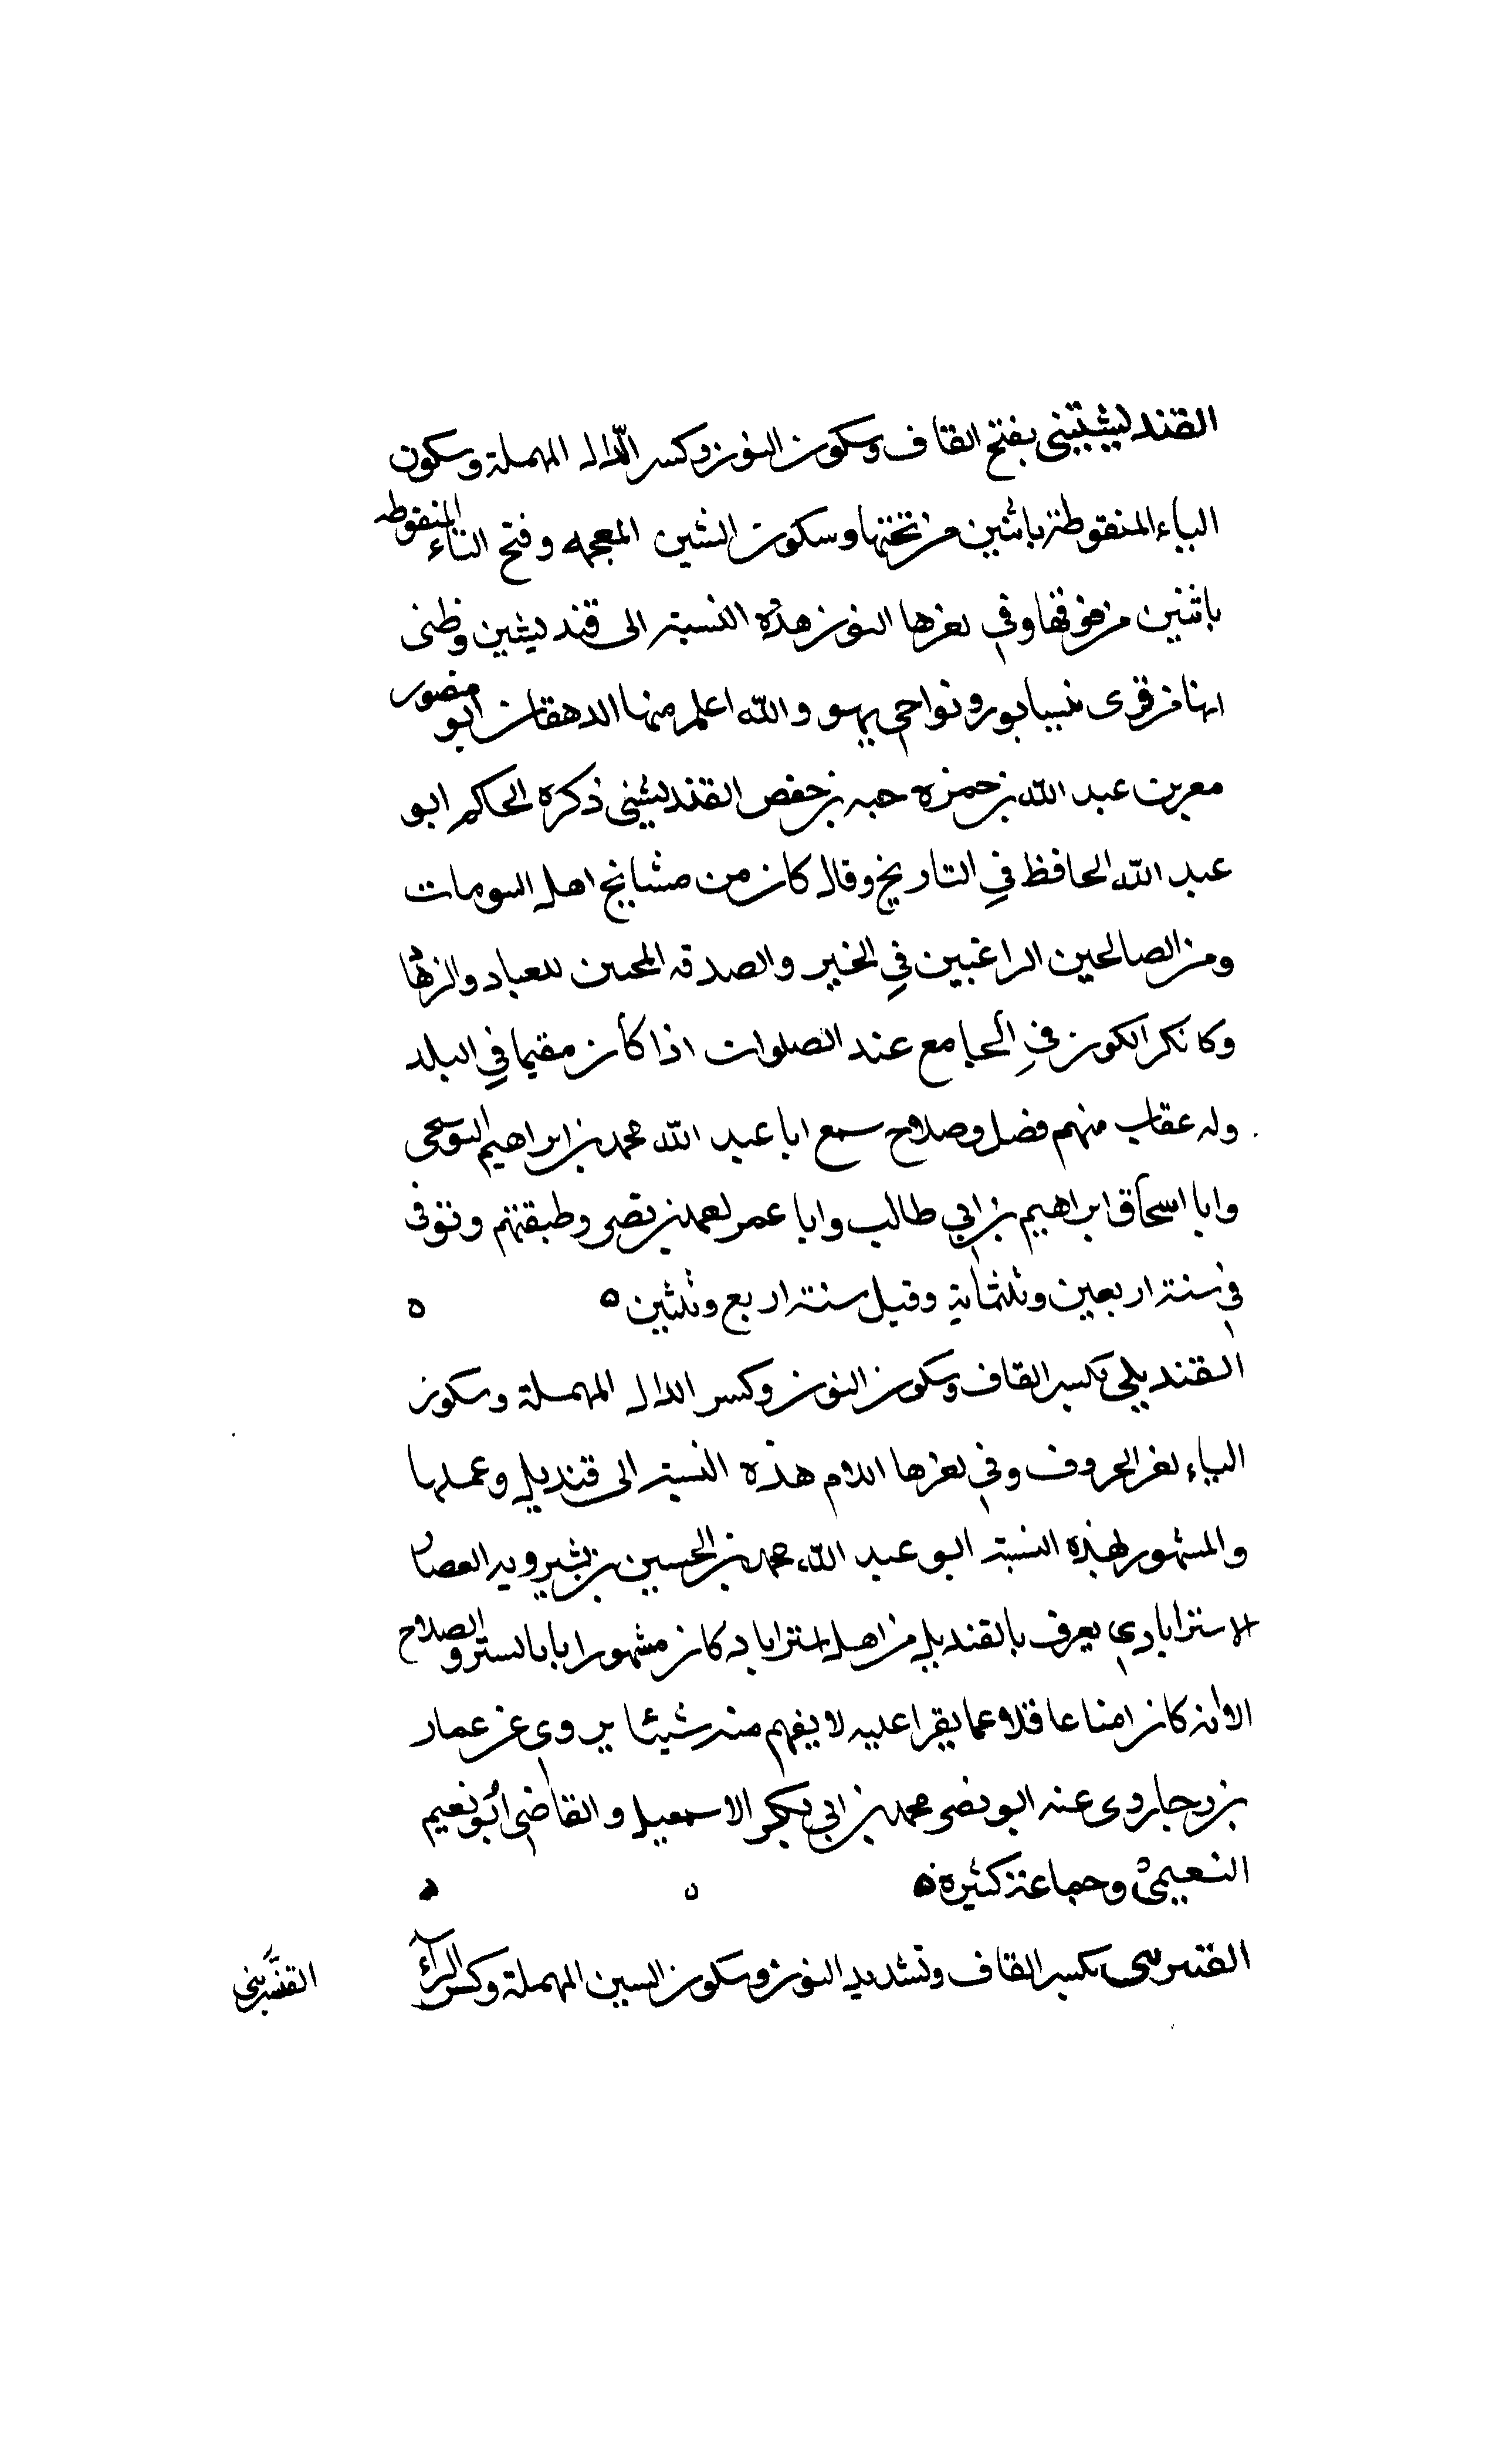 القنديشتني بفتح القاف وسكون النون وكسر الدال المهملة وسكون
الياء المنقوطة باثنين من تحتها وسكون الشين المعجمه وفتح التاء المنقوطه
باثنين من فوقها وفي اخرها النون هذه النسبة الى قنديشتن وظني
انها من قرى نيسابور ونواحي بهو والله اعلم منها الدهقان ابو منصور
بن عبد الله بن حمزه حبه بن حفص القنديشني ذكره الحاكم ابو
عبد الله الحافظ في التاريخ وقال كان من مشايخ اهل
ومن الصالحين الراغبين في الخير والصدقه للعباد والزهاد
الكون في الجامع عند الصلوات اذا كان مقيما في البلد
وله عقاب منهم فضل وصلاح سمع ابا عبد الله محمد بن ابراهيم البوسنجي
وابا اسحاق ابراهيم بن ابي طالب وابا عمر بن نصر وطبقتهم وتوفي
في سنة اربعين وثلثماية وقيل سنة اربع وثلثين ه ه
القنديلي بكسر القاف وسكون النون وكسر الدال المهملة وسكون
الياء اخر الحروف وفي اخرها اللام هذه النسبة الى قنديل وعملها
والمشهور بهذه النسبة ابو عبد الله محمد بن الحسين بن بشيرويه العصار
الاستراباذي يعرف بالقنديلي من اهل استراباد كان مشهورا بابا بالستر والصلاح
الا انه كان امنا عاقلا عما يقرا عليه لا يفهم منه شيئا يروي عن عمار
بن رجا روى عنه ابو نصر محمد بن ابي بكر الاسمعيلي والقاضي ابو نعيم
النعيمي وجماعة كثيرة ه
القنسرينى بكسر القاف وتشديد النون وسكون السين المهملة وكسر الراء
القنسريني